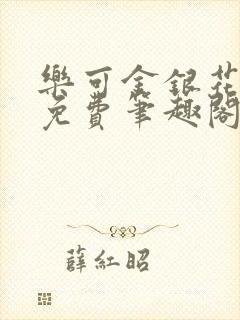 樂可金銀花
免費筆趣閣
薛紅昭